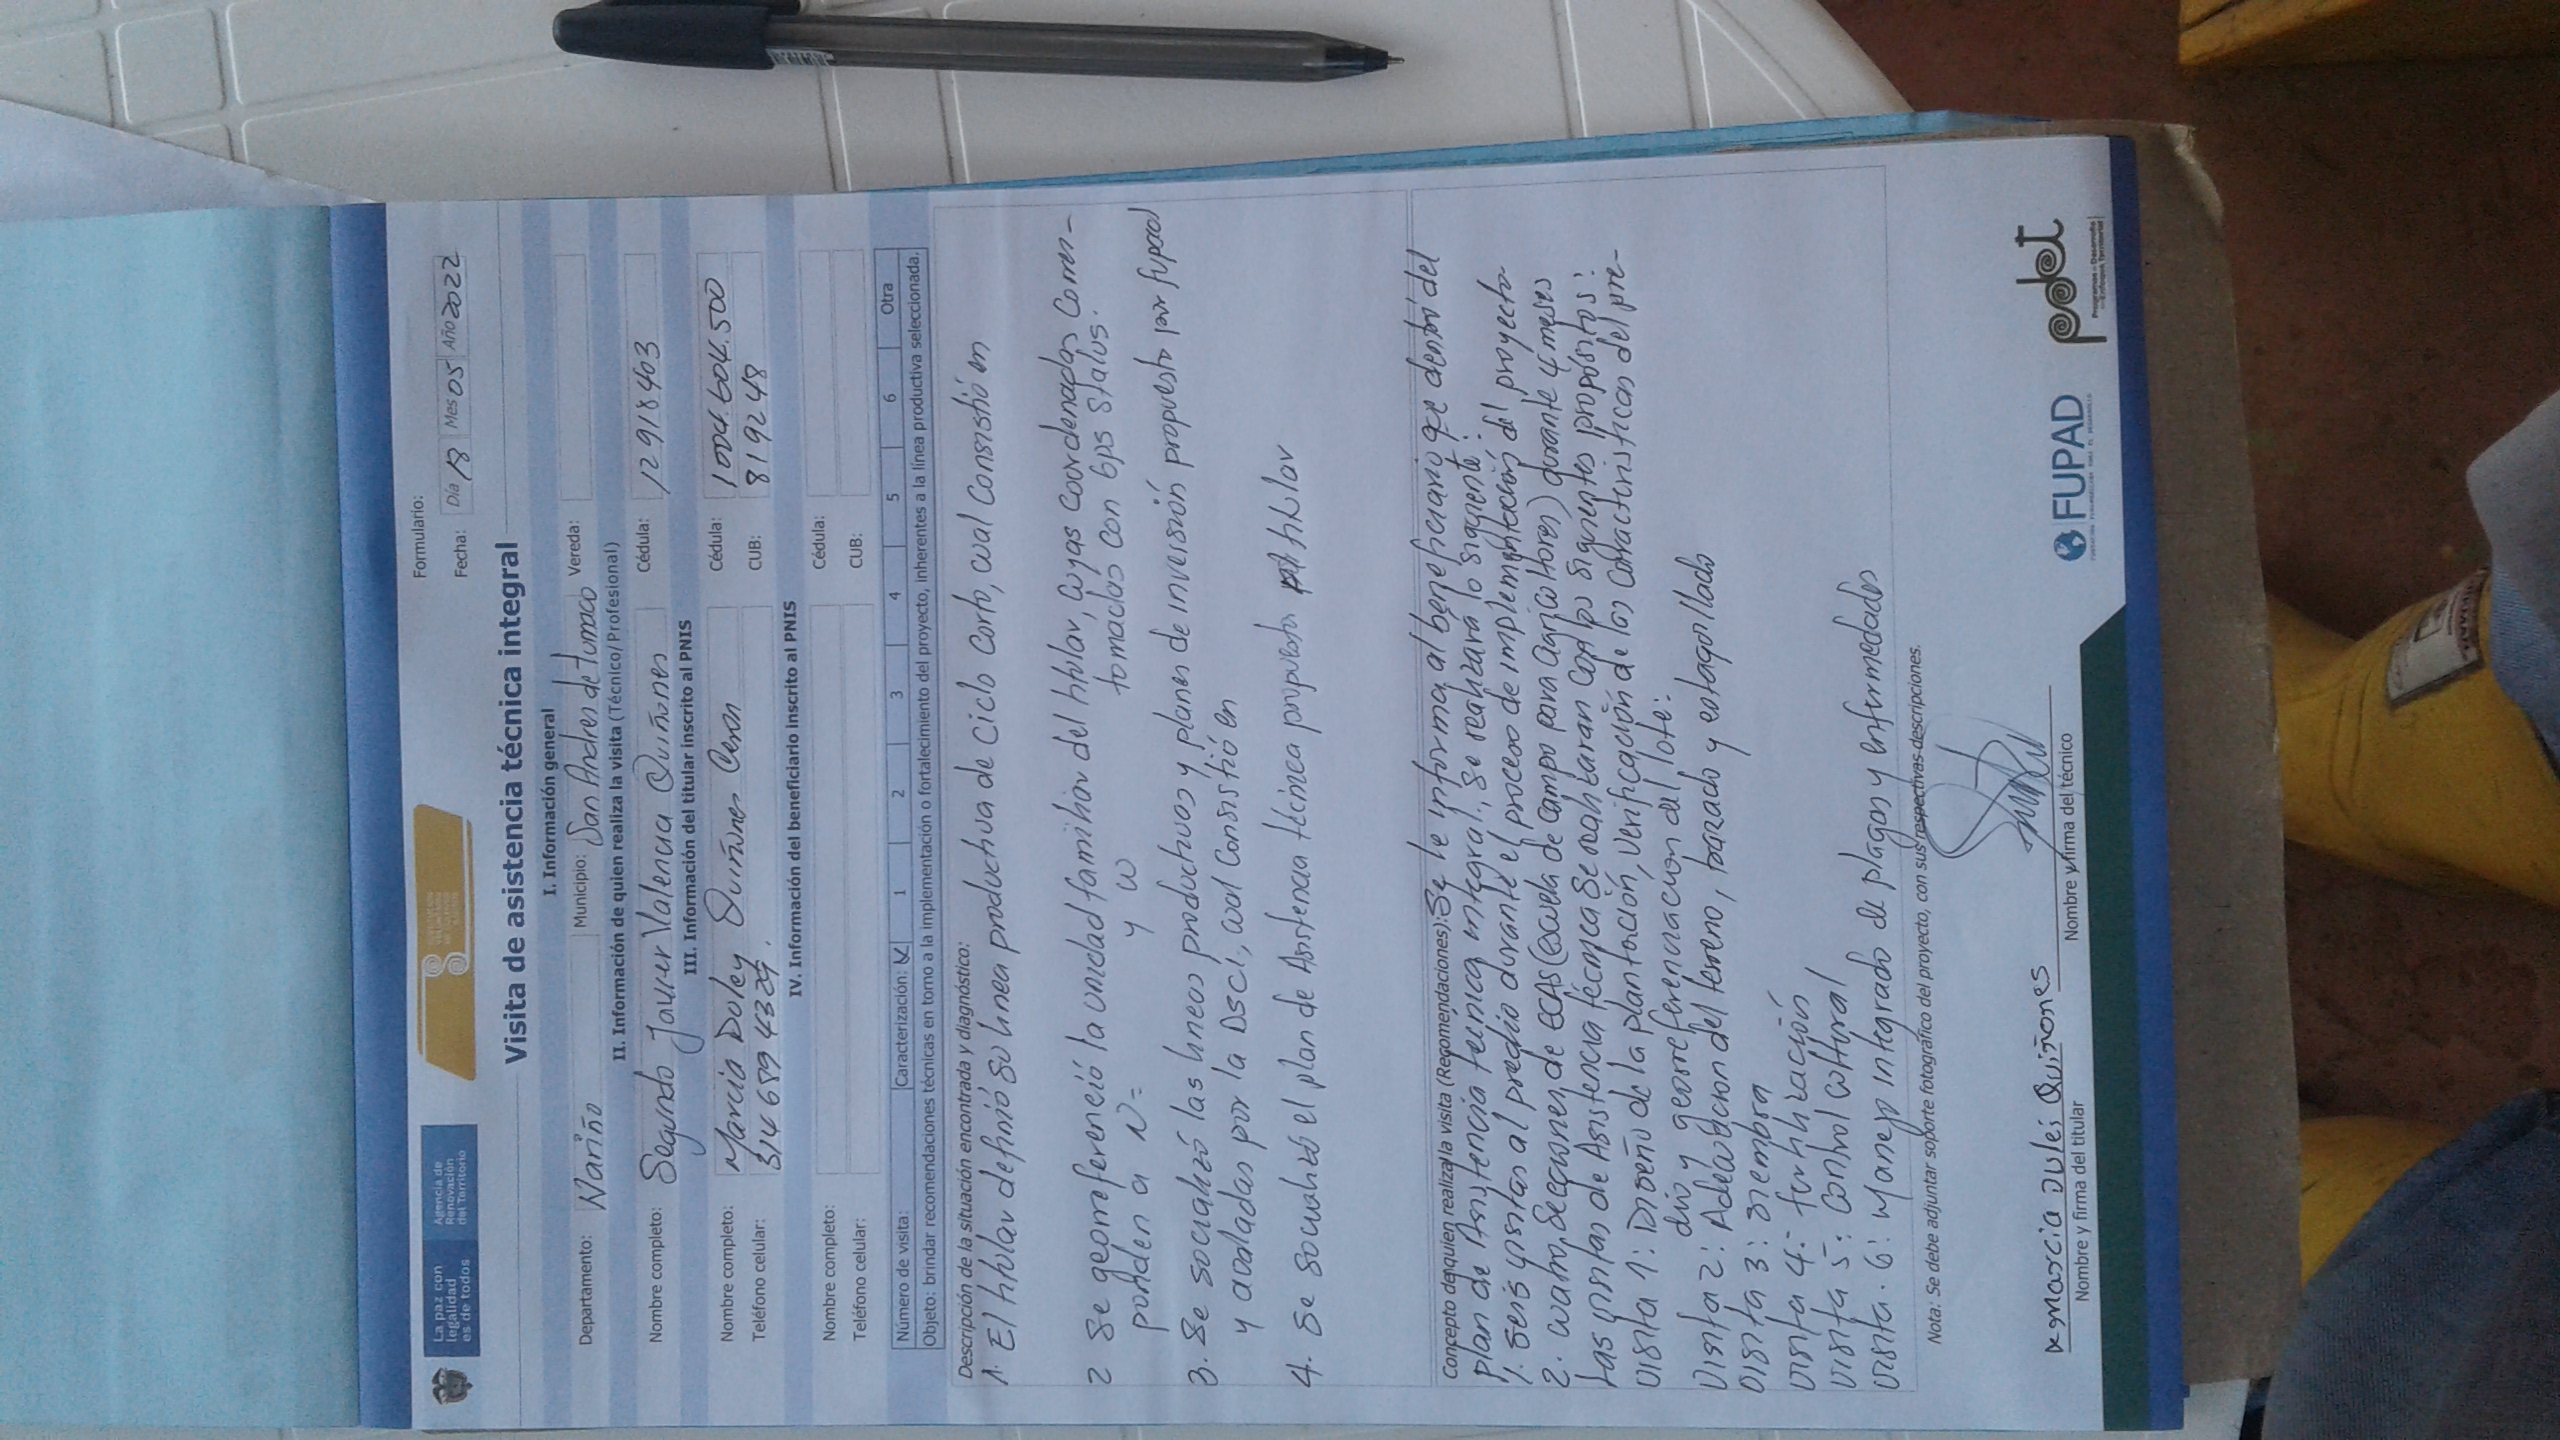 La paz con legalidad es de todos
Agencia de Renovación del Territorio
Formulario:
Fecha: Día 18 Mes 05 Año 2022
Visita de asistencia técnica integral
I. Información general
Departamento: Nariño Municipio: San Andres de tumaco Vereda:
II. Información de quien realiza la visita (Técnico/Profesional)
Nombre completo: Segundo Javier Valencia Quiñones Cédula: 12918403
III. Información del titular inscrito al PNIS
Nombre completo: Marcia Duley Quiñones Ceron Cédula: 1004.604.500
Teléfono celular: 314 689 4329. CUB: 819248
IV. Información del beneficiario inscrito al PNIS
Nombre completo: Cédula:
Teléfono celular: CUB:
Número de visita: Caracterización: X 1 2 3 4 5 6 Otra
Objeto: brindar recomendaciones técnicas en torno a la implementación o fortalecimiento del proyecto, inherentes a la línea productiva seleccionada.
Descripción de la situación encontrada y diagnóstico:
1. El titular definió su linea productiva de ciclo corto, cual consistió en
2 Se georreferenció la unidad familiar del titular, cuyas coordenadas Corres-
ponden a N= y W tomadas con Gps Status.
3. Se socializó las lineas productivas y planes de inversión propuesto por fupad
y avaladas por la DSCI, cual Consistió en
4. Se Socializó el plan de Asistencia técnica propuesta titular
Concepto de quien realiza la visita (Recomendaciones): Se le informa al beneficiario qe dentro del
plan de Asistencia técnica integral, se realizara lo siguiente:
1. Seis visitas al predio durante el proceso de implementación del proyecto
2. cuatro Secciones de ECAS (escuela de campo para Agricultores) durante 4 meses
Las visitas de Asistencia técnica se realizaran con los siguientes propósitos:
Visita 1: Diseño de la plantación, verificación de las Caracteristicas del pre-
dio y georreferenciacion del lote:
Visita 2: Adecuacion del terreno, trazado y estaquillado
Visita 3: siembra
Visita 4: fertilización
Visita 5: Control cultural
Visita. 6: Manejo integrado de plagas y enfermedades
Nota: Se debe adjuntar soporte fotográfico del proyecto, con sus respectivas descripciones.
X Marcia Dulei Quiñones
Nombre y firma del titular
Nombre y firma del técnico
FUPAD
pdet
Programas de Desarrollo con Enfoque Territorial